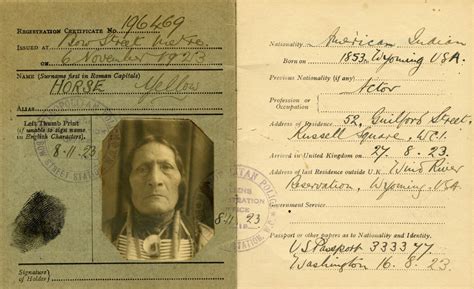 REGISTRATION CERTIFICATE No. 196469
ISSUED AT Bow Street Metro.
ON 6 November 1923
NAME (Surname first in Roman Capitals)
HORSE Yellow
ALIAS
Left Thumb Print
(if unable to sign name
in English Characters).
8-11-23
BOW STREET STATION
8-11-23
Signature
of Holder
Nationality American Indian
Born on 1853 Wyoming USA.
Previous Nationality (if any)
Profession or
Occupation
Actor
Address of Residence 52, Guilford Street,
Russell Square, W.C.1.
Arrived in United Kingdom on 27.8.23
Address of last Residence outside U.K. Wind River
Reservation, Wyoming, USA
Government Service
Passport or other papers as to Nationality and Identity.
US Passport 333377
Washington 16.8.23